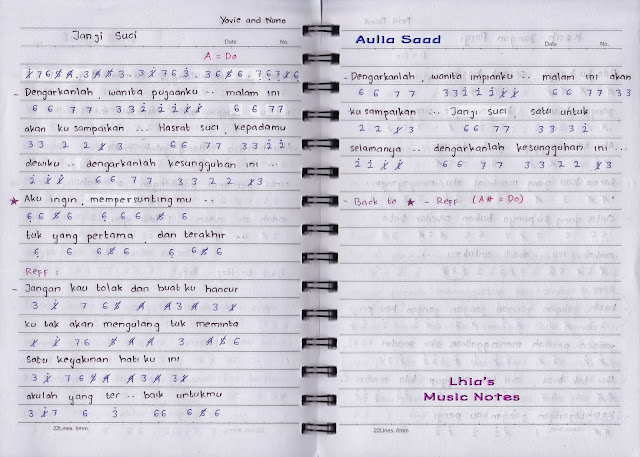 Yovie and Nuno
Janji Suci
Date No.
A = Do
- Dengarkanlah, wanita pujaanku .. malam ini
6 6 7 7 3 3 i i i̸ i̸ 6 6 7 7
akan ku sampaikan ... Hasrat suci, kepadamu
3 3 2 2 i̸ 3 6 6 7 7 3 3 i i
dewiku .. dengarkanlah kesungguhan ini ...
i i̸ i̸ 6 6 7 7 3 3 2 2 i̸ 3
★ Aku ingin, mempersunting mu ..
6 6 5̸ 6 6 6 6 5̸ 6
tuk yang pertama, dan terakhir ...
6 6 6 5̸ 6 6 6 5̸ 6
Reff :
- Jangan kau tolak dan buat ku hancur
3 i̸ 7 6 5̸ 4̸ 4̸ 3 4̸ 3 i̸
ku tak akan mengulang tuk meminta
i̸ i̸ 7 6 4̸ 4̸ 4̸ 3 4̸ 5̸ 6
Satu keyakinan hati ku ini
3 i̸ 7 6 5̸ 4̸ 4̸ 3 4̸ 3 i̸
akulah yang ter .. baik untukmu
3 i̸ 7 6 3 6 6 6 5̸ 6
22Lines, 8mm
Aulia Saad
Date No.
- Dengarkanlah, wanita impianku .. malam ini akan
6 6 7 7 3 3 i i i̸ i̸ 6 6 7 7 3 3
ku sampaikan ... Janji suci, satu untuk
2 2 i̸ 3 6 6 7 7 3 3 3 i
selamanya .. dengarkanlah kesungguhan ini ...
i i i̸ i̸ 6 6 7 7 3 3 2 2 i̸ 3
- Back to ★ - Reff (A# = Do)
Lhia's
Music Notes
22Lines, 8mm